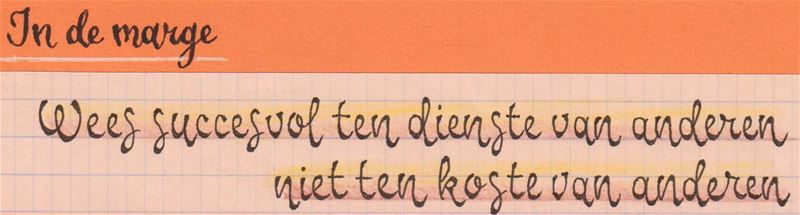 In de marge
Wees succesvol ten dienste van anderen
niet ten koste van anderen